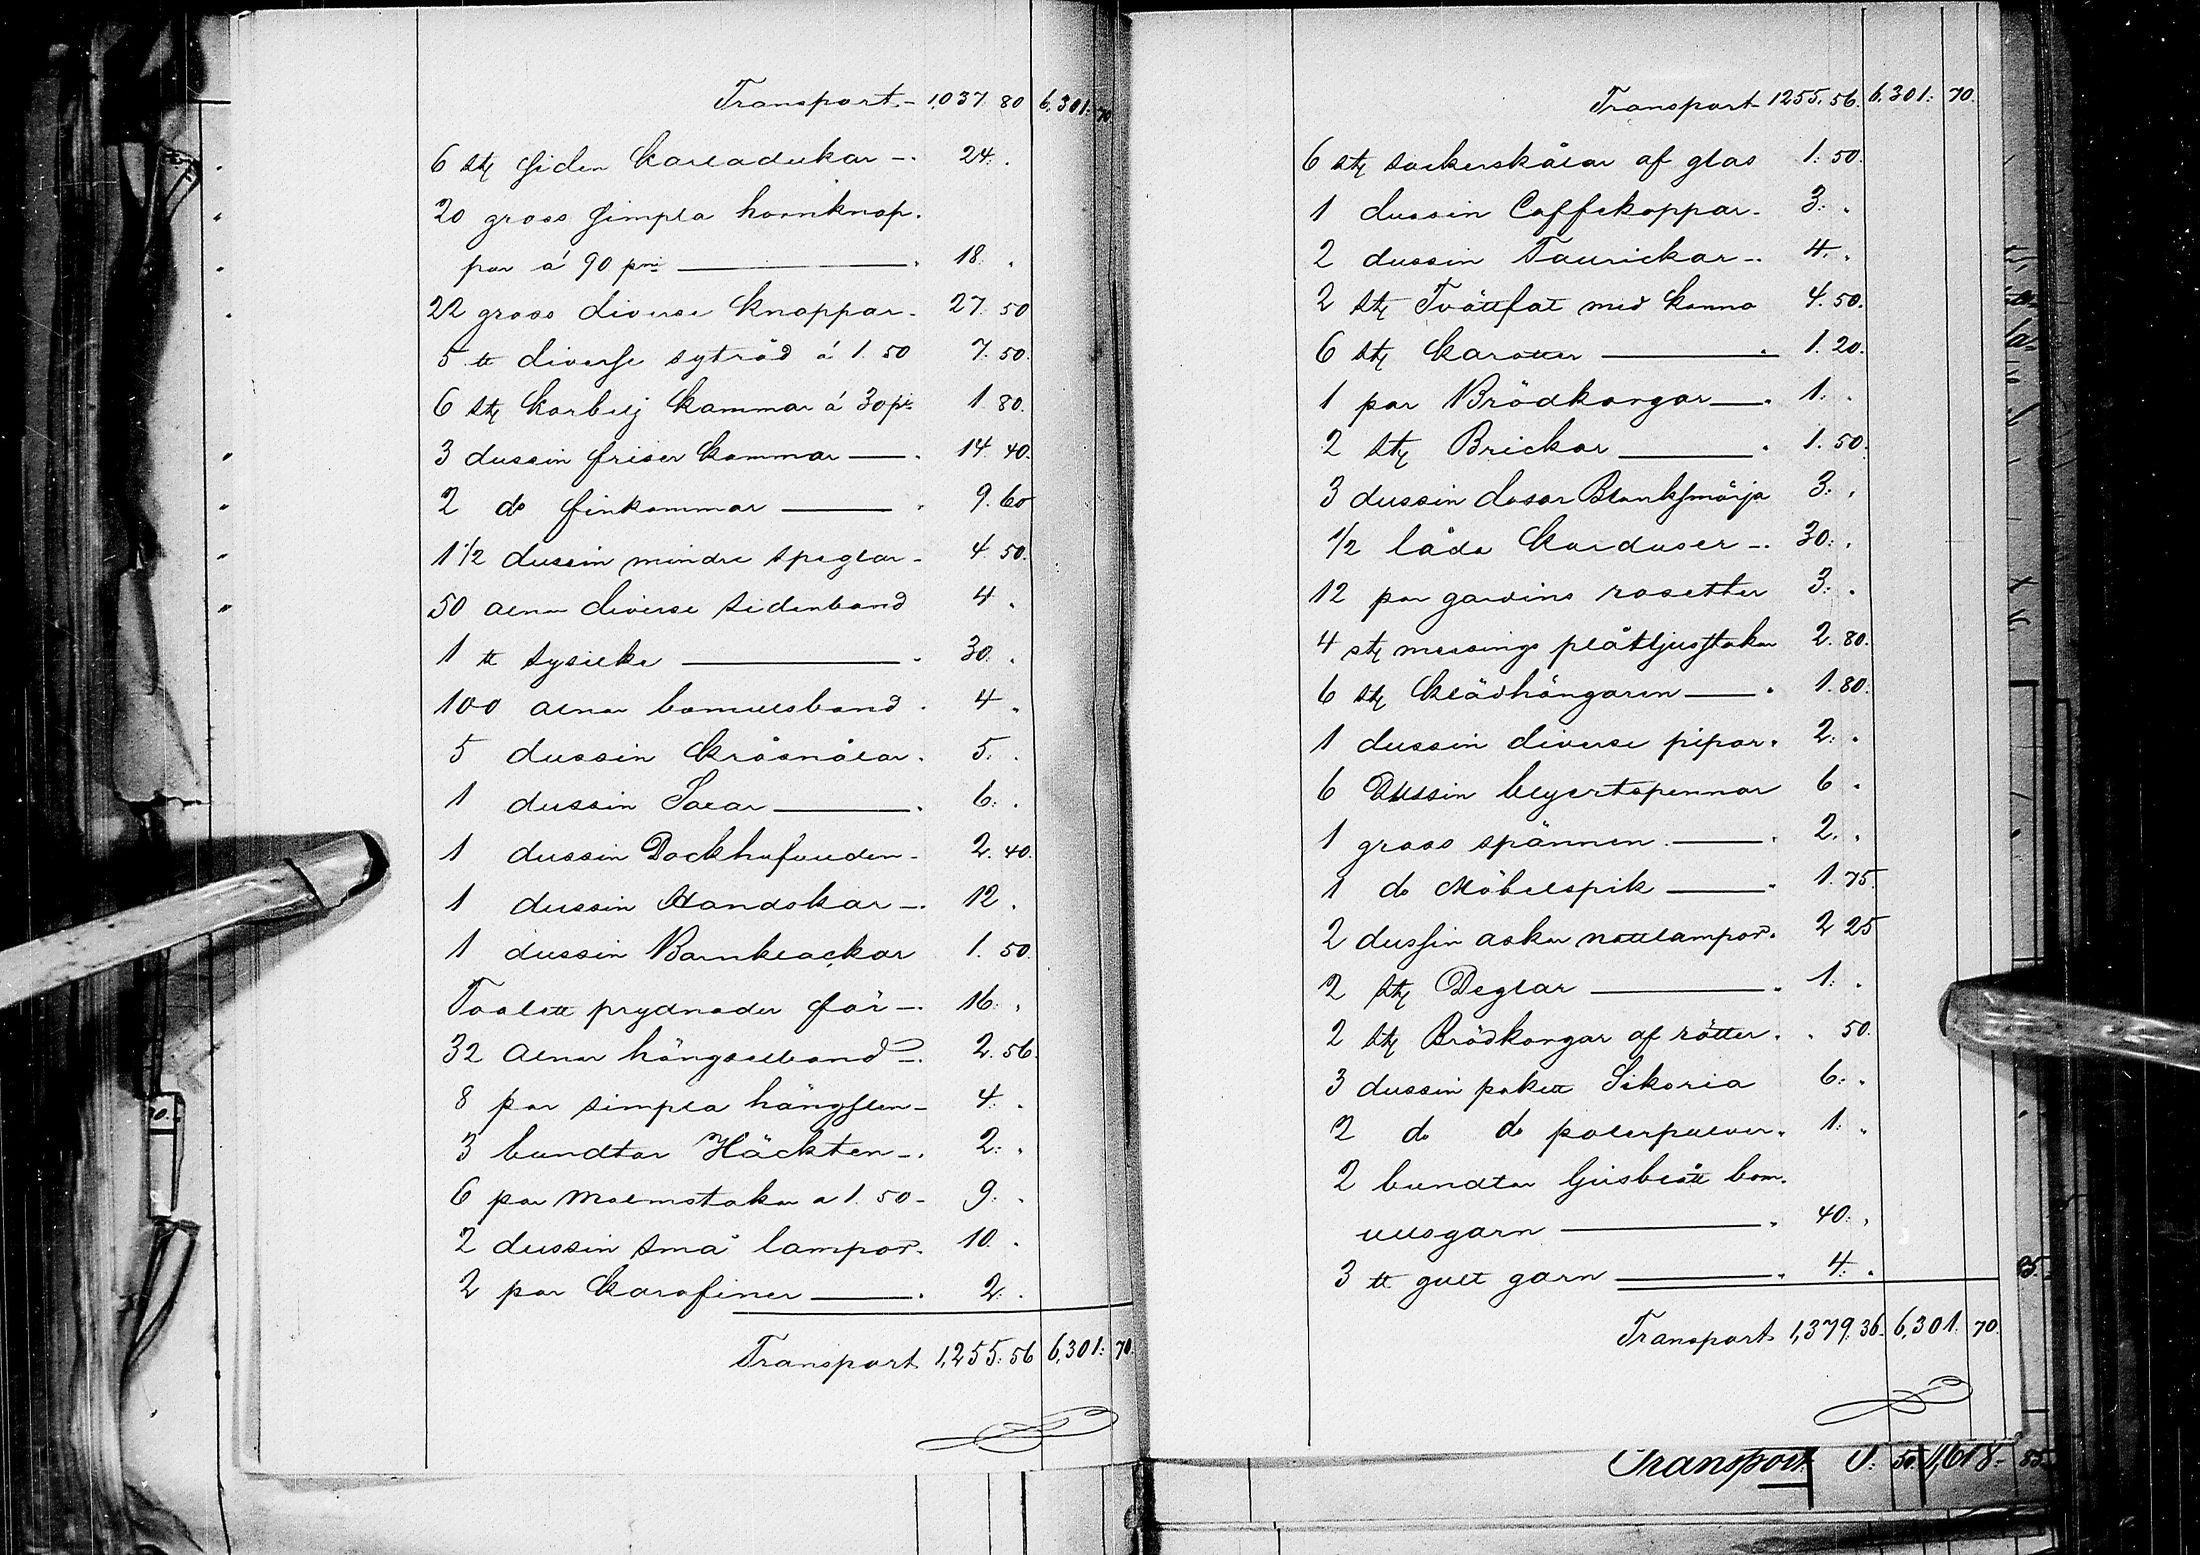 Transport - 1,037. 80 6,301: 70
6 stÿ siden Karladukar - 24. "
20 gross simpla hornknap-
par á 90 pni — 18. "
22 gross diverse Knappar - 27. 50
5 ℔ diverse sytråd á 1. 50 7. 50.
6 stÿ Karbilj Kammar á 30 pi 1. 80.
3 dussin friser Kammar — 14. 40.
2 do finkammar — 9. 60
1 1/2 dussin mindre speglar - 4. 50.
50 alnar diverse sidenband 4 "
1 ℔ sysilke — 30. "
100 alnar bomullsband 4 "
5 dussin Kråsnålar 5. "
1 dussin Saxar — 6. "
1 dussin Dockhufvuden - 2. 40.
1 dussin Handskar - 12. "
1 dussin Barnklackar 1. 50.
Toalett prydnader för - 16. "
32 alnar hängselband - 2. 56.
8 par simpla hängslen - 4. "
3 bundtar Häckten - 2: "
6 par Malmstakar a 1. 50 - 9: "
2 dussin små lampor. 10. "
2 par Karafiner — 2. "
Transport 1,255: 56 6,301: 70.
Transport 1255. 56. 6,301: 70.
6 stÿ sockerskålar af glas 1: 50.
1 dussin Caffekoppar - 3: "
2 dussin Taurickar - 4. "
2 stÿ Tvättfat med kanna 4. 50.
6 stÿ Karotter — 1. 20.
1 par Brödkorgar — 1: "
2 stÿ Brickor — 1. 50.
3 dussin dosor Blanksmörja 3: "
1/2 låda Karduser - 30: "
12 par gardins rosetter 3: "
4 stÿ messings plåtljusstakar 2. 80.
6 stÿ Klädhängaren — 1. 80.
1 dussin diverse pipor 2: "
6 Dussin blyertspennor 6 "
1 gross spännen — 2. "
1 do Möbelspik — 1. 75.
2 dussin askar nattlampor 2 25
2 stÿ Deglar — 1: "
2 stÿ Brödkorgar af rötter " 50.
3 dussin pakett Sikoria 6: "
2 do do polerpulver 1: "
2 bundtar ljusblått bom-
ullsgarn — 40: "
3 ℔ gult garn — 4: "
Transport 1,379. 36. 6,301. 70.
Transport 50. 1,618 - 85